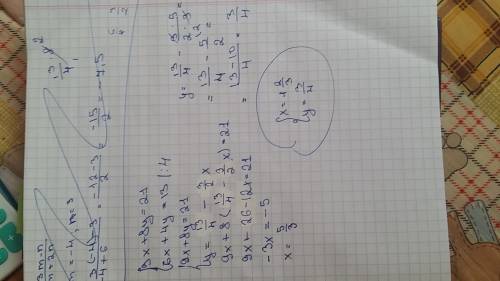 3m-n
m+2n
m = -4, n = 3
3·(-4)-3 / -4+6 = -12-3 / 2 = -15 / 2 = -7,5
13 / 4
{ 9x + 8y = 21
{ 6x + 4y = 13 |:4
{ 9x + 8y = 21
{ y = 13/4 - 3/2 x
9x + 8 ( 13/4 - 3/2 x ) = 21
9x + 26 - 12x = 21
-3x = -5
x = 5/3
y = 13/4 - 3·5 / 2·3 =
= 13/4 - 5/2 =
= 13-10 / 4 = 3/4
{ x = 1 2/3
{ y = 3/4